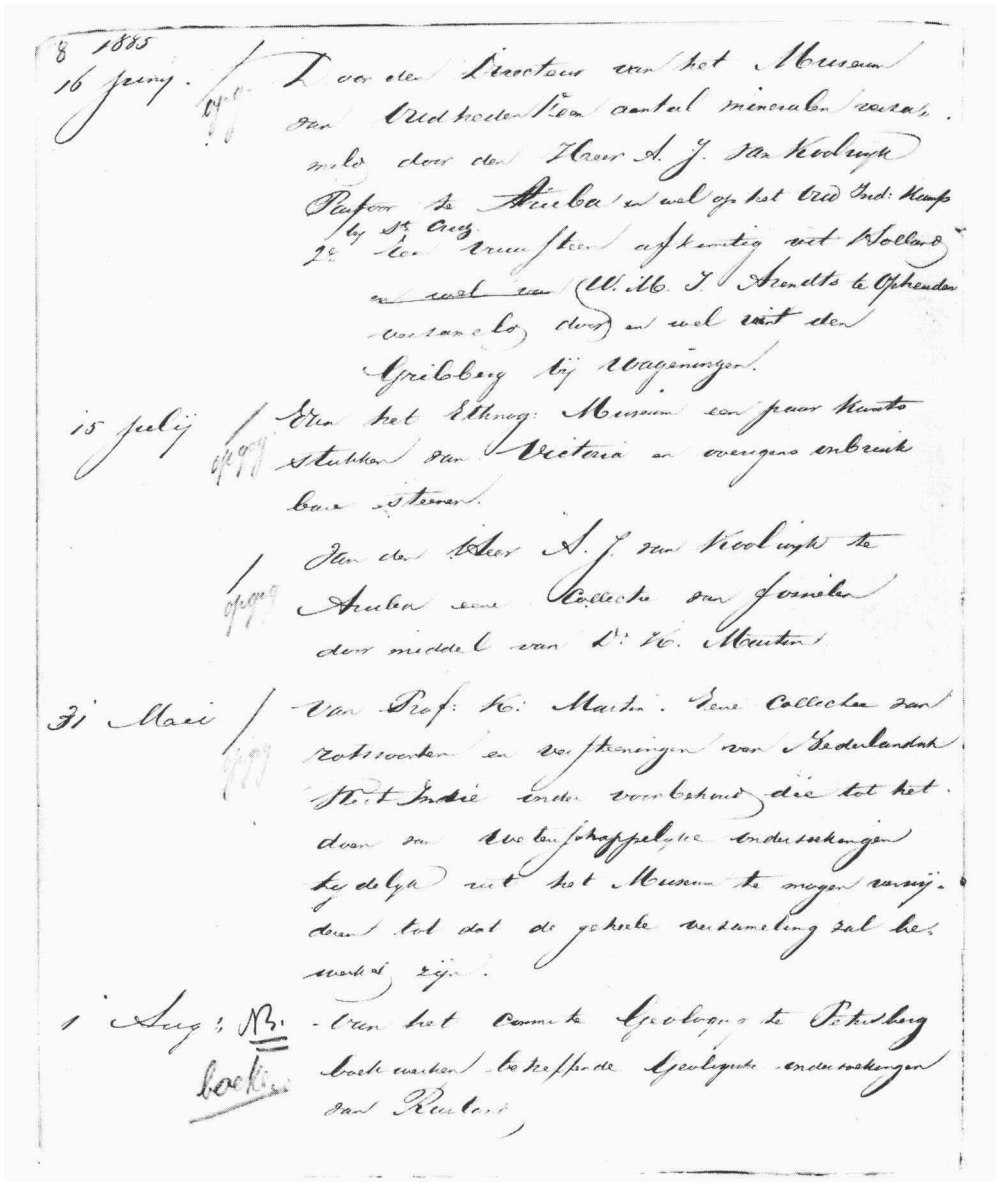 8 1885
16 Junij. / opgeg Door den Directeur van het Museum
van Oudheden 1e een aantal mineralen verza-
meld door den Heer A. J. van Koolwijk
Pastoor te Aruba en wel op het Oud Ind: Kamp
by St. Cruz.
2e Een vuursteen afkomstig uit Holland
en wel van (W. M. J. Arendts te Opheusden
verzameld door) en wel uit den
Grebberg bij Wageningen.
15 Julij / opgeg Van het Ethnog: Museum een paar kwarts
stukken van Victoria en overigens onbruik
bare steenen.
/ opgeg Van den Heer A. J. van Koolwijk te
Aruba eene Collectie van fossielen
door middel van Dr: K. Martin
31 Maei / opgeg Van Prof: K: Martin. Eene Collectie van
rotssoorten en versteeningen van Nederlandsch
West Indie onder voorbehoud die tot het
doen van wetenschappelijke onderzoekingen
tydelyk uit het Museum te mogen verwij-
deren tot dat de geheele verzameling zal be-
werkt zijn.
1 Aug: NB. - Van het comite Geologique te Petersberg
boeken boekwerken betreffende Geologische onderzoekingen
van Rusland